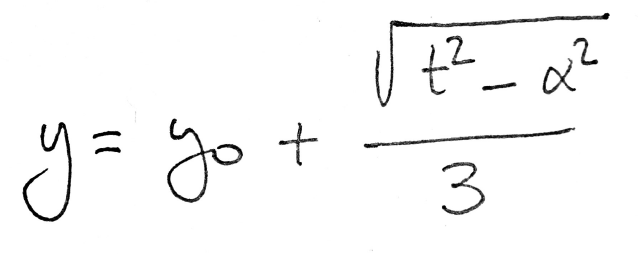 y = y₀ + √(t² - α²) / 3